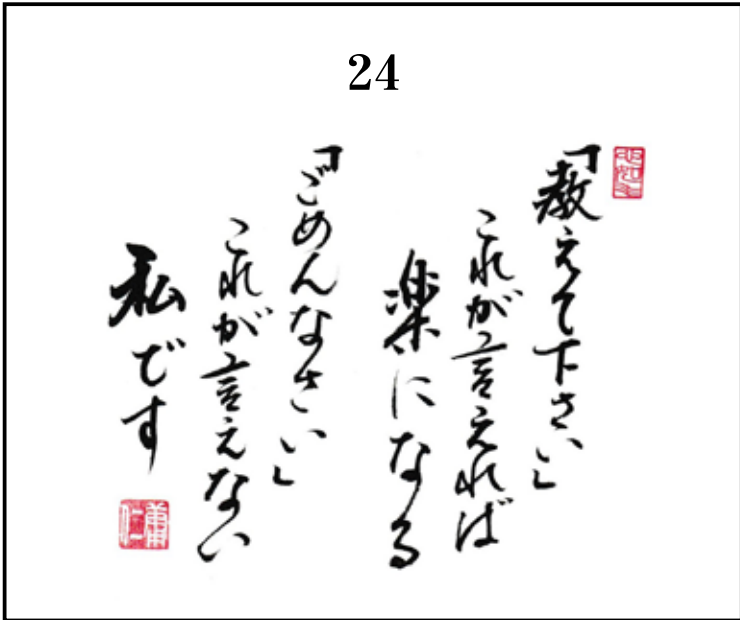 24
「教えて下さい」
これが言えれば
楽になる
「ごめんなさい」
これが言えない
私です